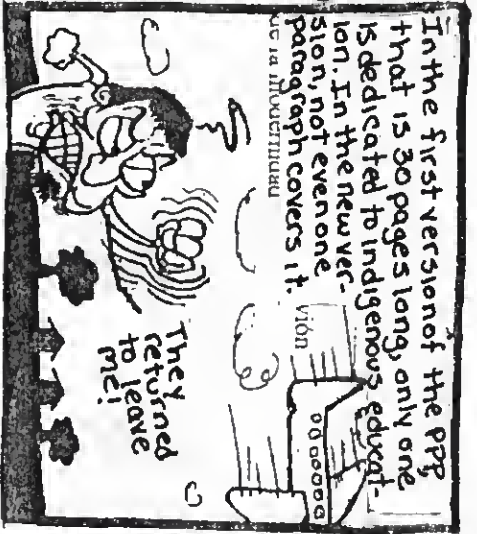 In the first version of the PPP
that is 30 pages long, only one
is dedicated to indigenous educat-
ion. In the new ver-
sion, not even one
paragraph covers it.
vión
They
returned
to leave
me!